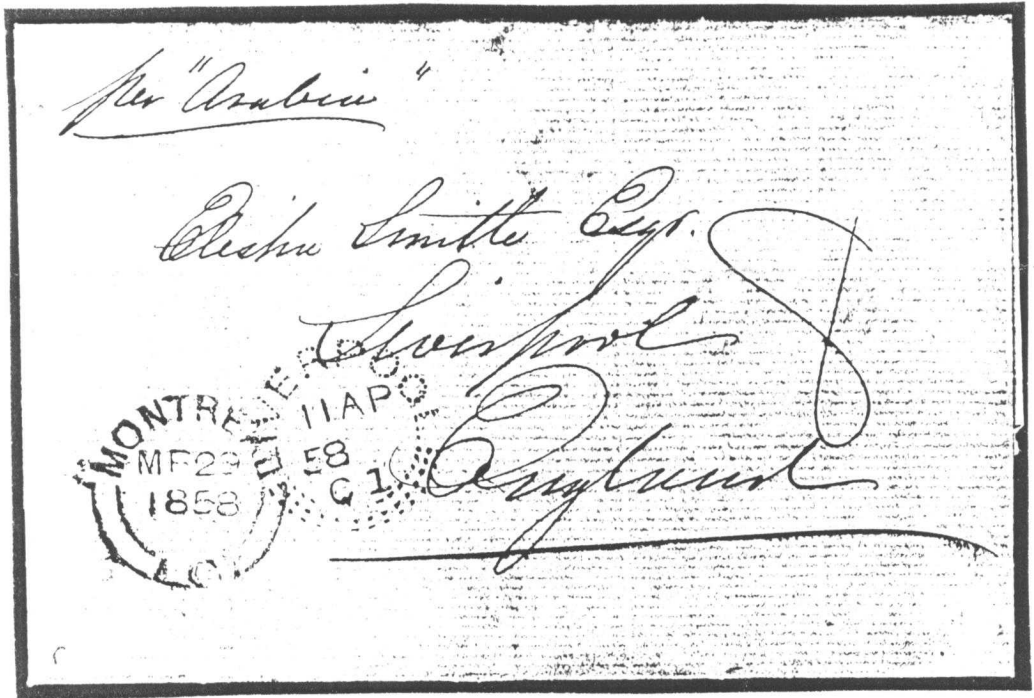 per "Arabia"
Elisha Smith Esqr.
Liverpool
England
8
MONTRE
MR 29
1858
L.C.
LIVERPOOL
11 AP
58
C 1